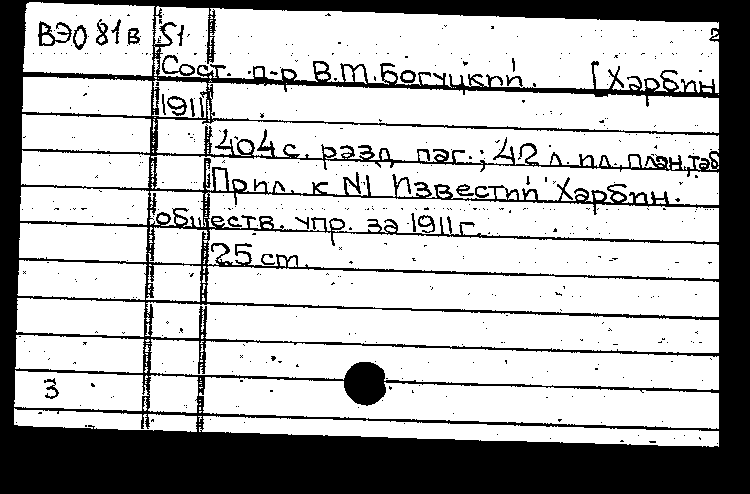 ВЭО 81в 51 2
Сост. д-р В.М.Богуцкий. [Харбин
1911]
404 с. разд. паг.; 42 л. пл., план, таб
Прил. к №1 Известий Харбин.
обществ. упр. за 1911 г.
25 cm.
3